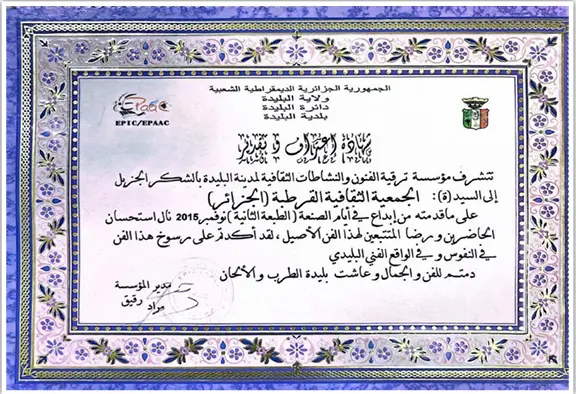 الجمهورية الجزائرية الديمقراطية الشعبية
ولاية البليدة
دائرة البليدة
بلدية البليدة
EPIC/EPAAC
شهادة اعتراف و تقدير
تتشرف مؤسسة ترقية الفنون والنشاطات الثقافية لمدينة البليدة بالشكر الجزيل
إلى السيد(ة): الجمعية الثقافية القرطبة (الجزائر)
على ماقدمته من إبداع في أيام الصنعة (الطبعة الثانية) نوفمبر 2015 نال استحسان
الحاضرين و رضا المتتبعين لهذا الفن الأصيل، لقد أكدتم على رسوخ هذا الفن
في النفوس و في الواقع الفني البليدي
دمتم للفن والجمال وعاشت بليدة الطرب و الألحان
مدير المؤسسة
مراد رقيق